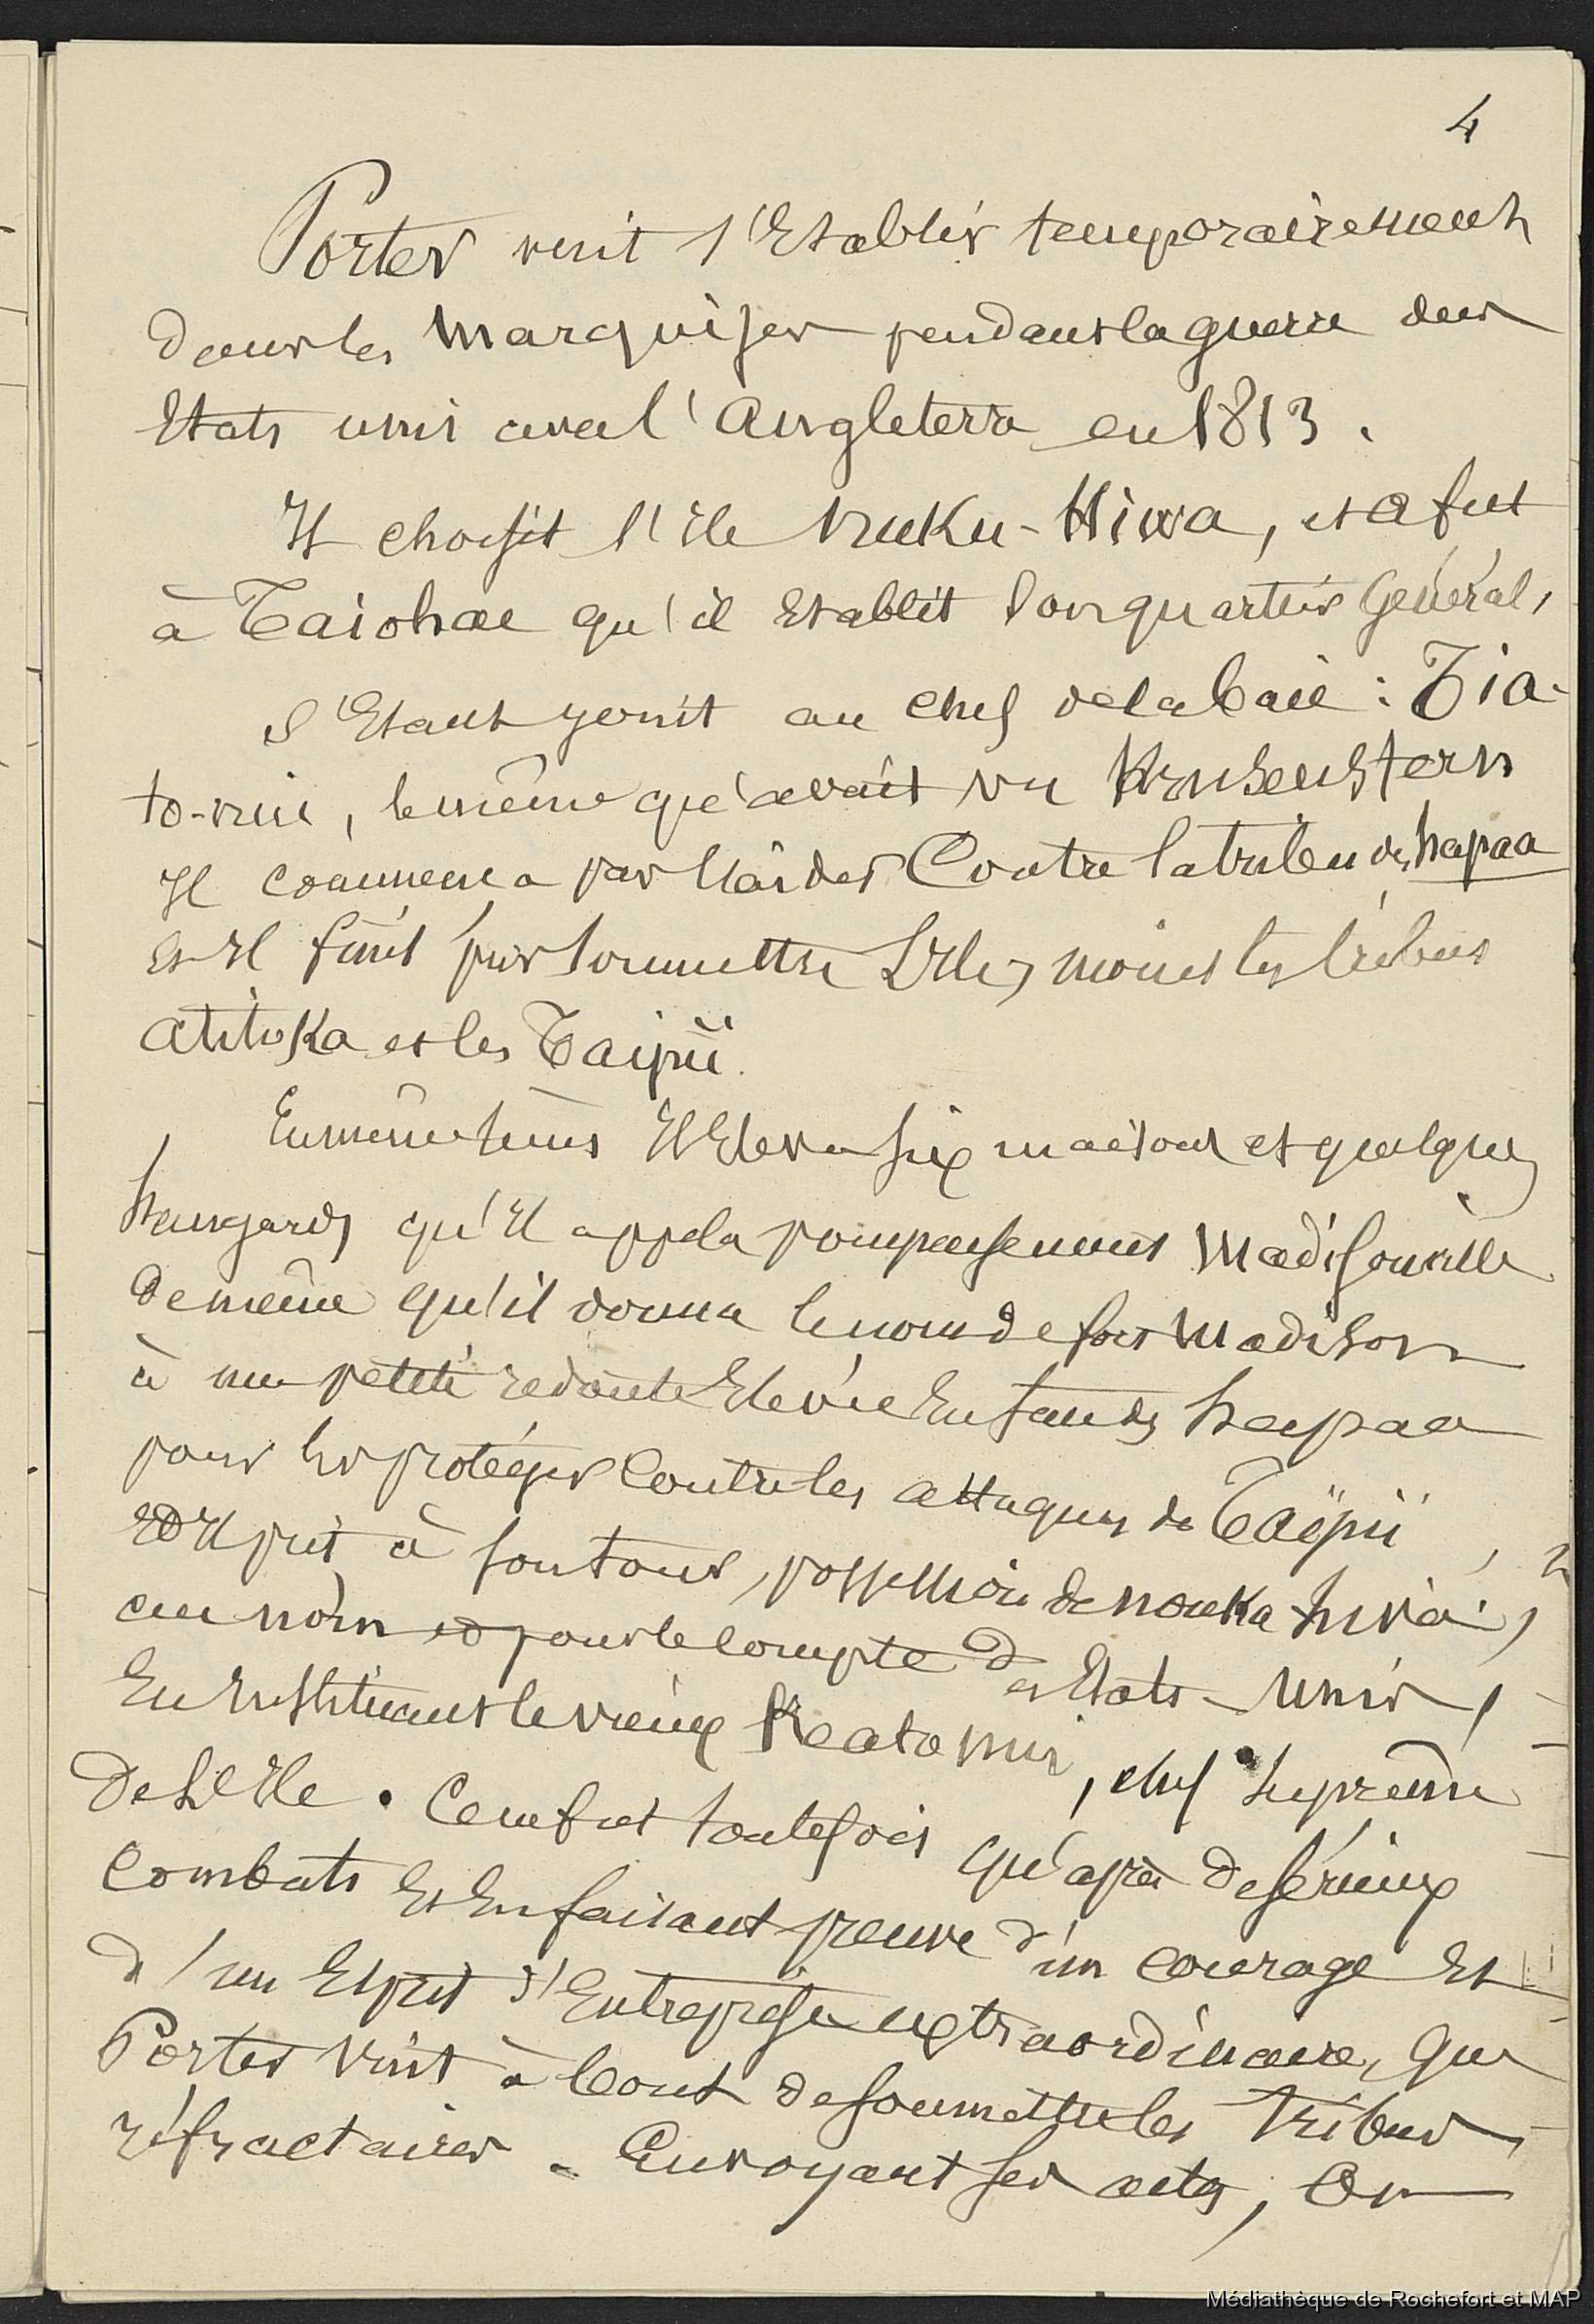 4
Porter vint s'Etablir temporairement
dans les Marquises pendant la guerre des
Etats unis avec l'Angleterre en 1813.
Il choisit l'Ile Nuku-Hiwa, et a fut
à Taiohae qu'il Etablit son quartier Général,
S'Etant joint au chef de la baie : Tia-
to-nui, le même qu'avait vu Krusenstern
Il commença par l'aider Contre la tribu des hapaa
Et Il finit par soumettre L'Ile, moins les tribus
atitoka et les Taïpii.
En même tems Il Eleva six maisons et quelques
hangards qu'Il appela pompeusement Madisonville
De même qu'il donna le nom de fort Madison
à une petite redoute Elevée En fan des hapaa
pour les protéger Contre les attaques de Taïpii,
Et Il prit à son tour, possession de nouka-hiva,
au nom et pour le compte des Etats-Unis,
En Instituant le vieux Keatonui, chef suprême
De L'Ile. Ce ne fut toutefois qu'après de sérieux
Combats Et En faisant preuve d'un courage Et
d'un Esprit d'Entreprise extraordinaire, que
Porter vint à bout de soumettre les Tribus
réfractaires. Envoyant ses actes, On
Médiathèque de Rochefort et MAP